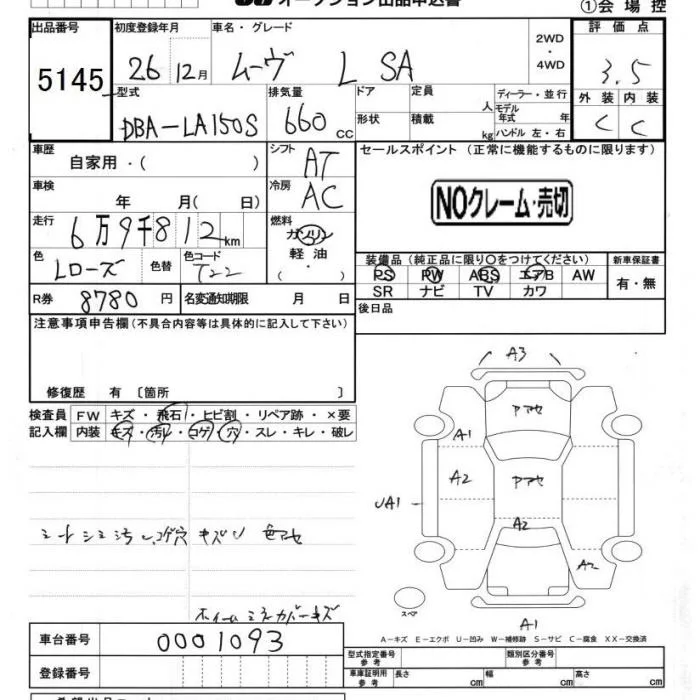 オークション出品申込書
①会場控
出品番号 初度登録年月 車名・グレード 2WD・4WD 評価点
5145 26 12月 ムーヴ L SA 3.5
型式 排気量 ドア 定員 人 ディーラー・並行 外装 内装
DBA-LA150S 660 CC 形状 積載 kg モデル年式 年 ハンドル 左・右 C C
車歴 自家用・( ) シフト AT セールスポイント (正常に機能するものに限ります)
車検 年 月( 日) 冷房 AC NOクレーム・売切
走行 6万9千812km 燃料 ガソリン 軽油 ・( )
色 Lローズ 色替 色コード T22 装備品(純正品に限り○をつけてください) 新車保証書
PS PW ABS エアB AW 有・無
SR ナビ TV カワ
R券 8780円 名変通知期限 月 日 後日品
注意事項申告欄(不具合内容等は具体的に記入して下さい)
修復歴 有 〔箇所 〕
検査員 FW キズ・飛石・ヒビ割・リペア跡・×要
記入欄 内装 キズ・汚レ・コゲ・穴・スレ・キレ・破レ
A3
アマセ
A1
A2 アマセ
UA1
A2
A2
キズU 色アセ
スペア
A1
A-キズ E-エクボ U-凹み W-補修跡 S-サビ C-腐食 XX-交換済
車台番号 0001093 型式指定番号 参考 類別区分番号 参考
登録番号 車庫証明用 参考 長さ cm 幅 cm 高さ cm